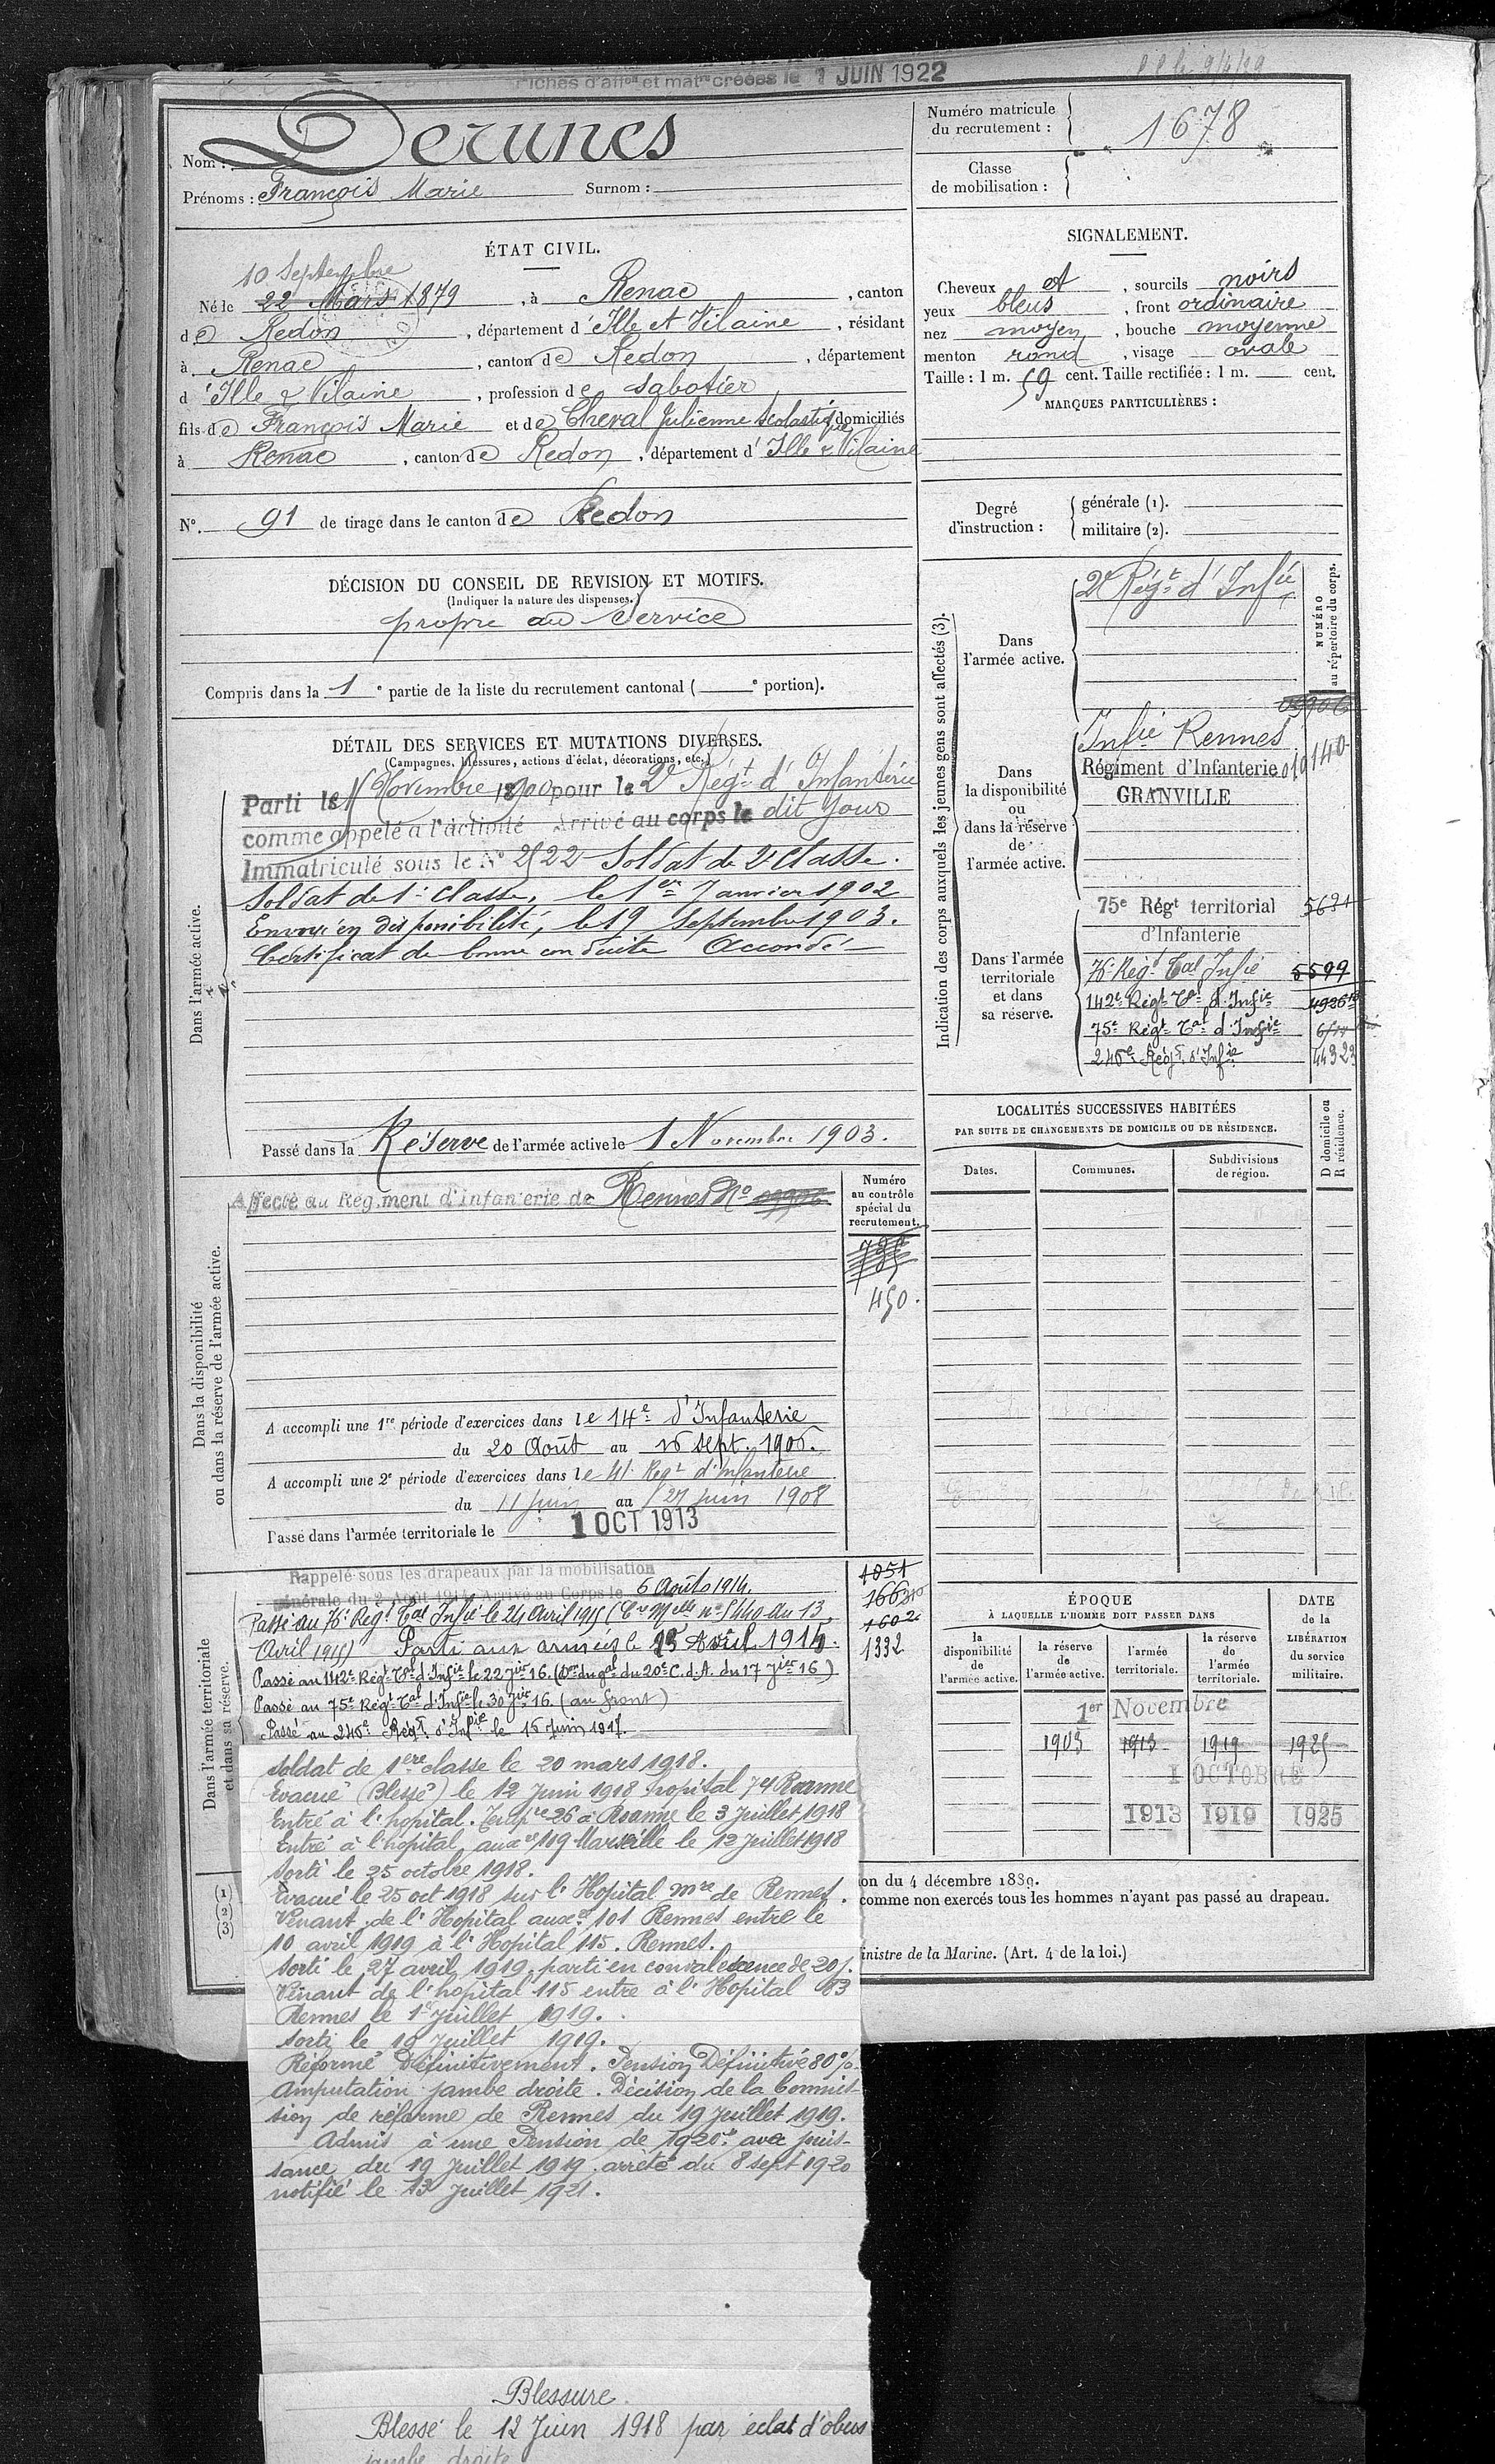 Fiches d'aff<sup>on</sup> et mat<sup>re</sup> créées le 1 JUIN 1922
Nom : Derunes
Prénoms : François Marie Surnom :
Numéro matricule du recrutement : 1678
Classe de mobilisation :
ÉTAT CIVIL.
10 Septembre
Né le 22 Mars 1879, à Renac, canton
de Redon, département d'Ille et Vilaine, résidant
à Renac, canton de Redon, département
d'Ille & Vilaine, profession de sabotier
fils de François Marie et de Cheval Julienne Scolastique domiciliés
à Renac, canton de Redon, département d'Ille & Vilaine
N°. 91 de tirage dans le canton de Redon
SIGNALEMENT.
Cheveux et, sourcils noirs
yeux bleus, front ordinaire
nez moyen, bouche moyenne
menton rond, visage ovale
Taille : 1 m. 59 cent. Taille rectifiée : 1 m. cent.
MARQUES PARTICULIÈRES :
Degré d'instruction : générale (1).
militaire (2).
DÉCISION DU CONSEIL DE REVISION ET MOTIFS.
(Indiquer la nature des dispenses.)
propre au service
Compris dans la 1e partie de la liste du recrutement cantonal ( e portion).
DÉTAIL DES SERVICES ET MUTATIONS DIVERSES.
(Campagnes, blessures, actions d'éclat, décorations, etc.)
Dans l'armée active.
Parti le Novembre 1900 pour le 2e Régt d'Infanterie
comme appelé à l'activité Arrivé au corps le dit jour
Immatriculé sous le N° 2522 Soldat de 2e Classe.
Soldat de 1e Classe, le 1er Janvier 1902
Envoyé en disponibilité, le 19 Septembre 1903.
Certificat de bonne conduite Accordé
Passé dans la Réserve de l'armée active le 1 Novembre 1903.
Indication des corps auxquels les jeunes gens sont affectés (3).
NUMÉRO au répertoire du corps.
Dans l'armée active.
2e Régt d'Infie
09906
Dans la disponibilité ou dans la réserve de l'armée active.
Infie Rennes
Régiment d'Infanterie 010140
GRANVILLE
Dans l'armée territoriale et dans sa réserve.
75e Régt territorial
d'Infanterie
76e Régt Tal Infie 5599
142e Régt Tal d'Infie
75e Régt Tal d'Infie
246e Régt d'Infie 44323
LOCALITÉS SUCCESSIVES HABITÉES
PAR SUITE DE CHANGEMENTS DE DOMICILE OU DE RÉSIDENCE.
Dates. Communes. Subdivisions de région. D domicile ou R résidence.
Dans la disponibilité ou dans la réserve de l'armée active.
Affecté au Régiment d'Infanterie de Rennes No 09906
Numéro au contrôle spécial du recrutement.
450.
A accompli une 1re période d'exercices dans le 14e d'Infanterie
du 20 Août au 16 sept. 1906.
A accompli une 2e période d'exercices dans le 41e Regt d'Infanterie
du 11 juin au 27 juin 1908
Passé dans l'armée territoriale le 1 OCT 1913
Dans l'armée territoriale et dans sa réserve.
Rappelé sous les drapeaux par la mobilisation
générale du 2 Août 1914. Arrivé au Corps le 6 Août 1914.
Passé au 76e Régt Tal Infie le 24 Avril 1915 (Cre Melle n° 5440 du 13
Avril 1915) Parti aux armées le 25 Avril 1915.
Passé au 142e Régt Tal d'Infie le 22 Jier 16. (Don du gal du 20e C.d.A. du 17 Jier 16)
Passé au 75e Régt Tal d'Infie le 30 Jier 16. (au front)
Passé au 246e Régt d'Infie le 16 Juin 1917.
1051
1602
1332
ÉPOQUE
À LAQUELLE L'HOMME DOIT PASSER DANS
la disponibilité de l'armée active. la réserve de l'armée active. l'armée territoriale. la réserve de l'armée territoriale.
DATE de la LIBÉRATION du service militaire.
1er Novembre
1903 1913 1919 1925
1 OCTOBRE
1913 1919 1925
on du 4 décembre 1889.
comme non exercés tous les hommes n'ayant pas passé au drapeau.
inistre de la Marine. (Art. 4 de la loi.)
(1)
(2)
(3)
soldat de 1ere classe le 20 mars 1918.
Evacué (Blessé) le 12 Juin 1918 hopital 74 Roanne
Entré à l'hopital. Tempre 26 à Roanne le 3 Juillet 1918
Entré à l'hopital auxre 119 Marseille le 12 Juillet 1918
Sorti le 25 octobre 1918.
Evacué le 25 oct 1918 sur l'Hopital mre de Rennes.
Venant de l'Hopital auxre 101 Rennes entre le
10 avril 1919 à l'Hopital 115. Rennes.
Sorti le 27 avril 1919. parti en convalescence de 20 j.
Venant de l'hopital 115 entre à l'Hopital 63
Rennes le 1er Juillet 1919.
Sorti le 19 Juillet 1919.
Réformé Définitivement. Pension Définitive 80%
Amputation jambe droite. Décision de la Commis-
sion de réforme de Rennes du 19 Juillet 1919.
Admis à une Pension de 1920f avec jouis-
sance du 19 Juillet 1919. arrêté du 8 sept 1920
notifié le 13 Juillet 1921.
Blessure
Blessé le 12 Juin 1918 par éclat d'obus
jambe droite